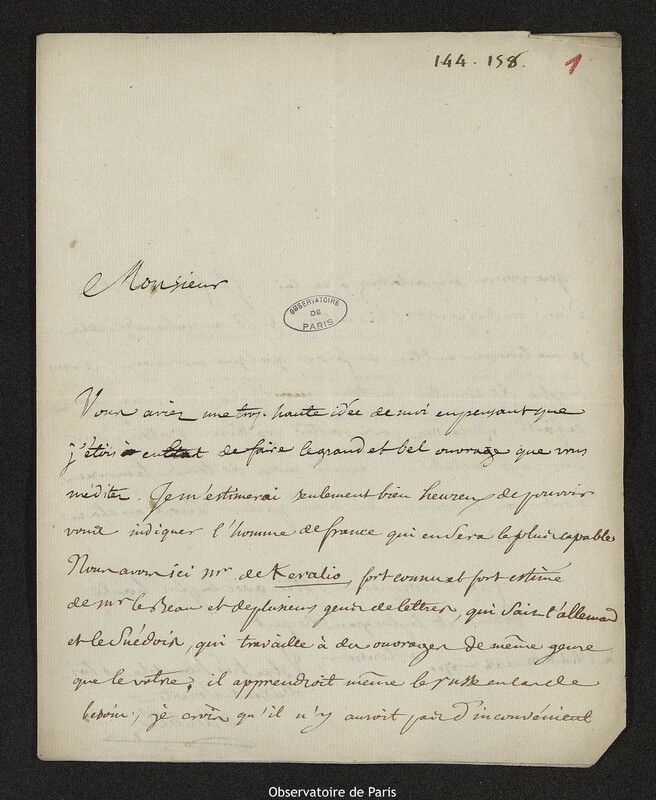 144. 158.
1
Monsieur
OBSERVATOIRE
DE
PARIS
Vous aviez une trop haute idée de moi en pensant que
j'étois en état de faire le grand et bel ouvrage que vous
méditez. Je m'estimerai seulement bien heureux de pouvoir
vous indiquer l'homme de france qui en sera le plus capable
Nous avons ici mr. de Keralio, fort connu et fort estimé
de mr le Beau et de plusieurs gens de lettres, qui sait l'allemand
et le Suédois, qui travaille à des ouvrages de même genre
que le votre; il apprendroit même le russe en cas de
besoin; je crois qu'il n'y auroit pas d'inconvénient
Observatoire de Paris